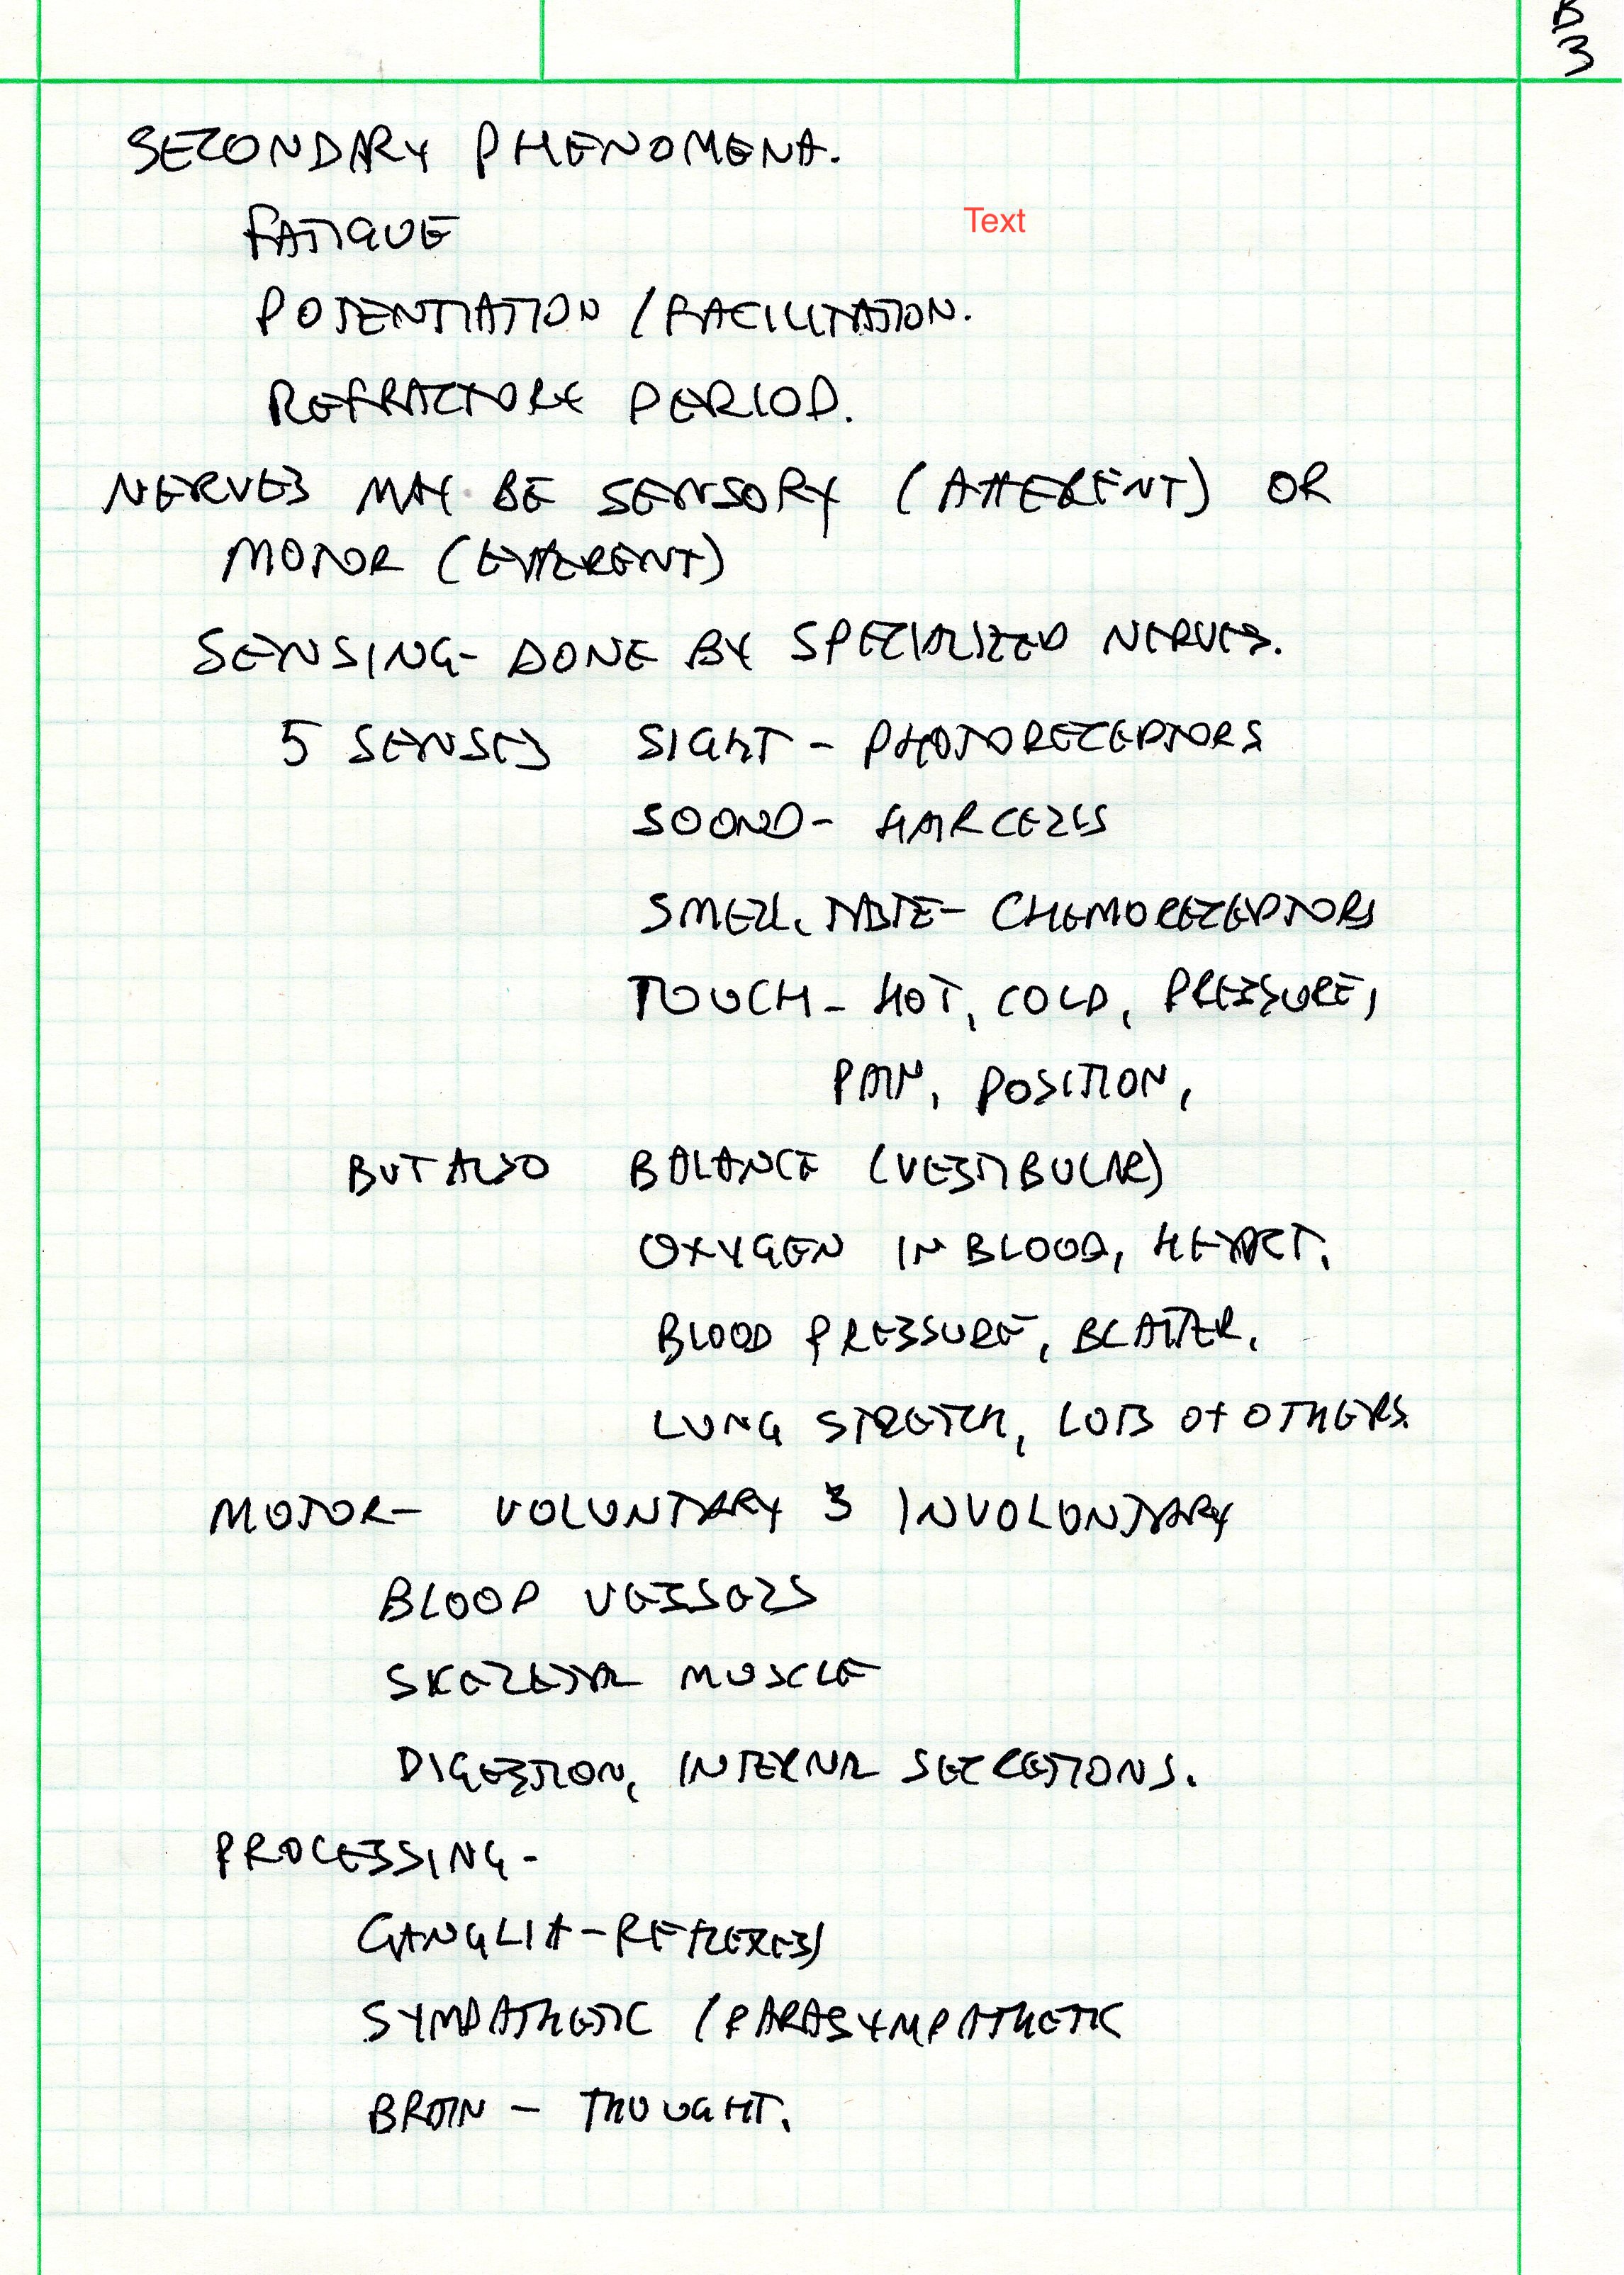 B
3
SECONDARY PHENOMENA.
FATIGUE
Text
POTENTIATION / FACILITATION.
REFRACTORE PERIOD.
NERVES MAY BE SENSORY (AFFERENT) OR
MOTOR (EFFERENT)
SENSING - DONE BY SPECIALIZED NERVES.
5 SENSES SIGHT - PHOTORECEPTORS
SOUND - HAIR CELLS
SMELL, TASTE - CHEMORECEPTORS
TOUCH - HOT, COLD, PRESSURE,
PAIN, POSITION,
BUT ALSO BALANCE (VESTIBULAR)
OXYGEN IN BLOOD, HEART,
BLOOD PRESSURE, BLATTER,
LUNG STRETCH, LOTS OF OTHERS.
MOTOR - VOLUNTARY & INVOLUNTARY
BLOOD VESSELS
SKELETAL MUSCLE
DIGESTION, INTERNAL SECRETIONS.
PROCESSING -
GANGLIA - REFLEXES
SYMPATHETIC / PARASYMPATHETIC
BRAIN - THOUGHT.